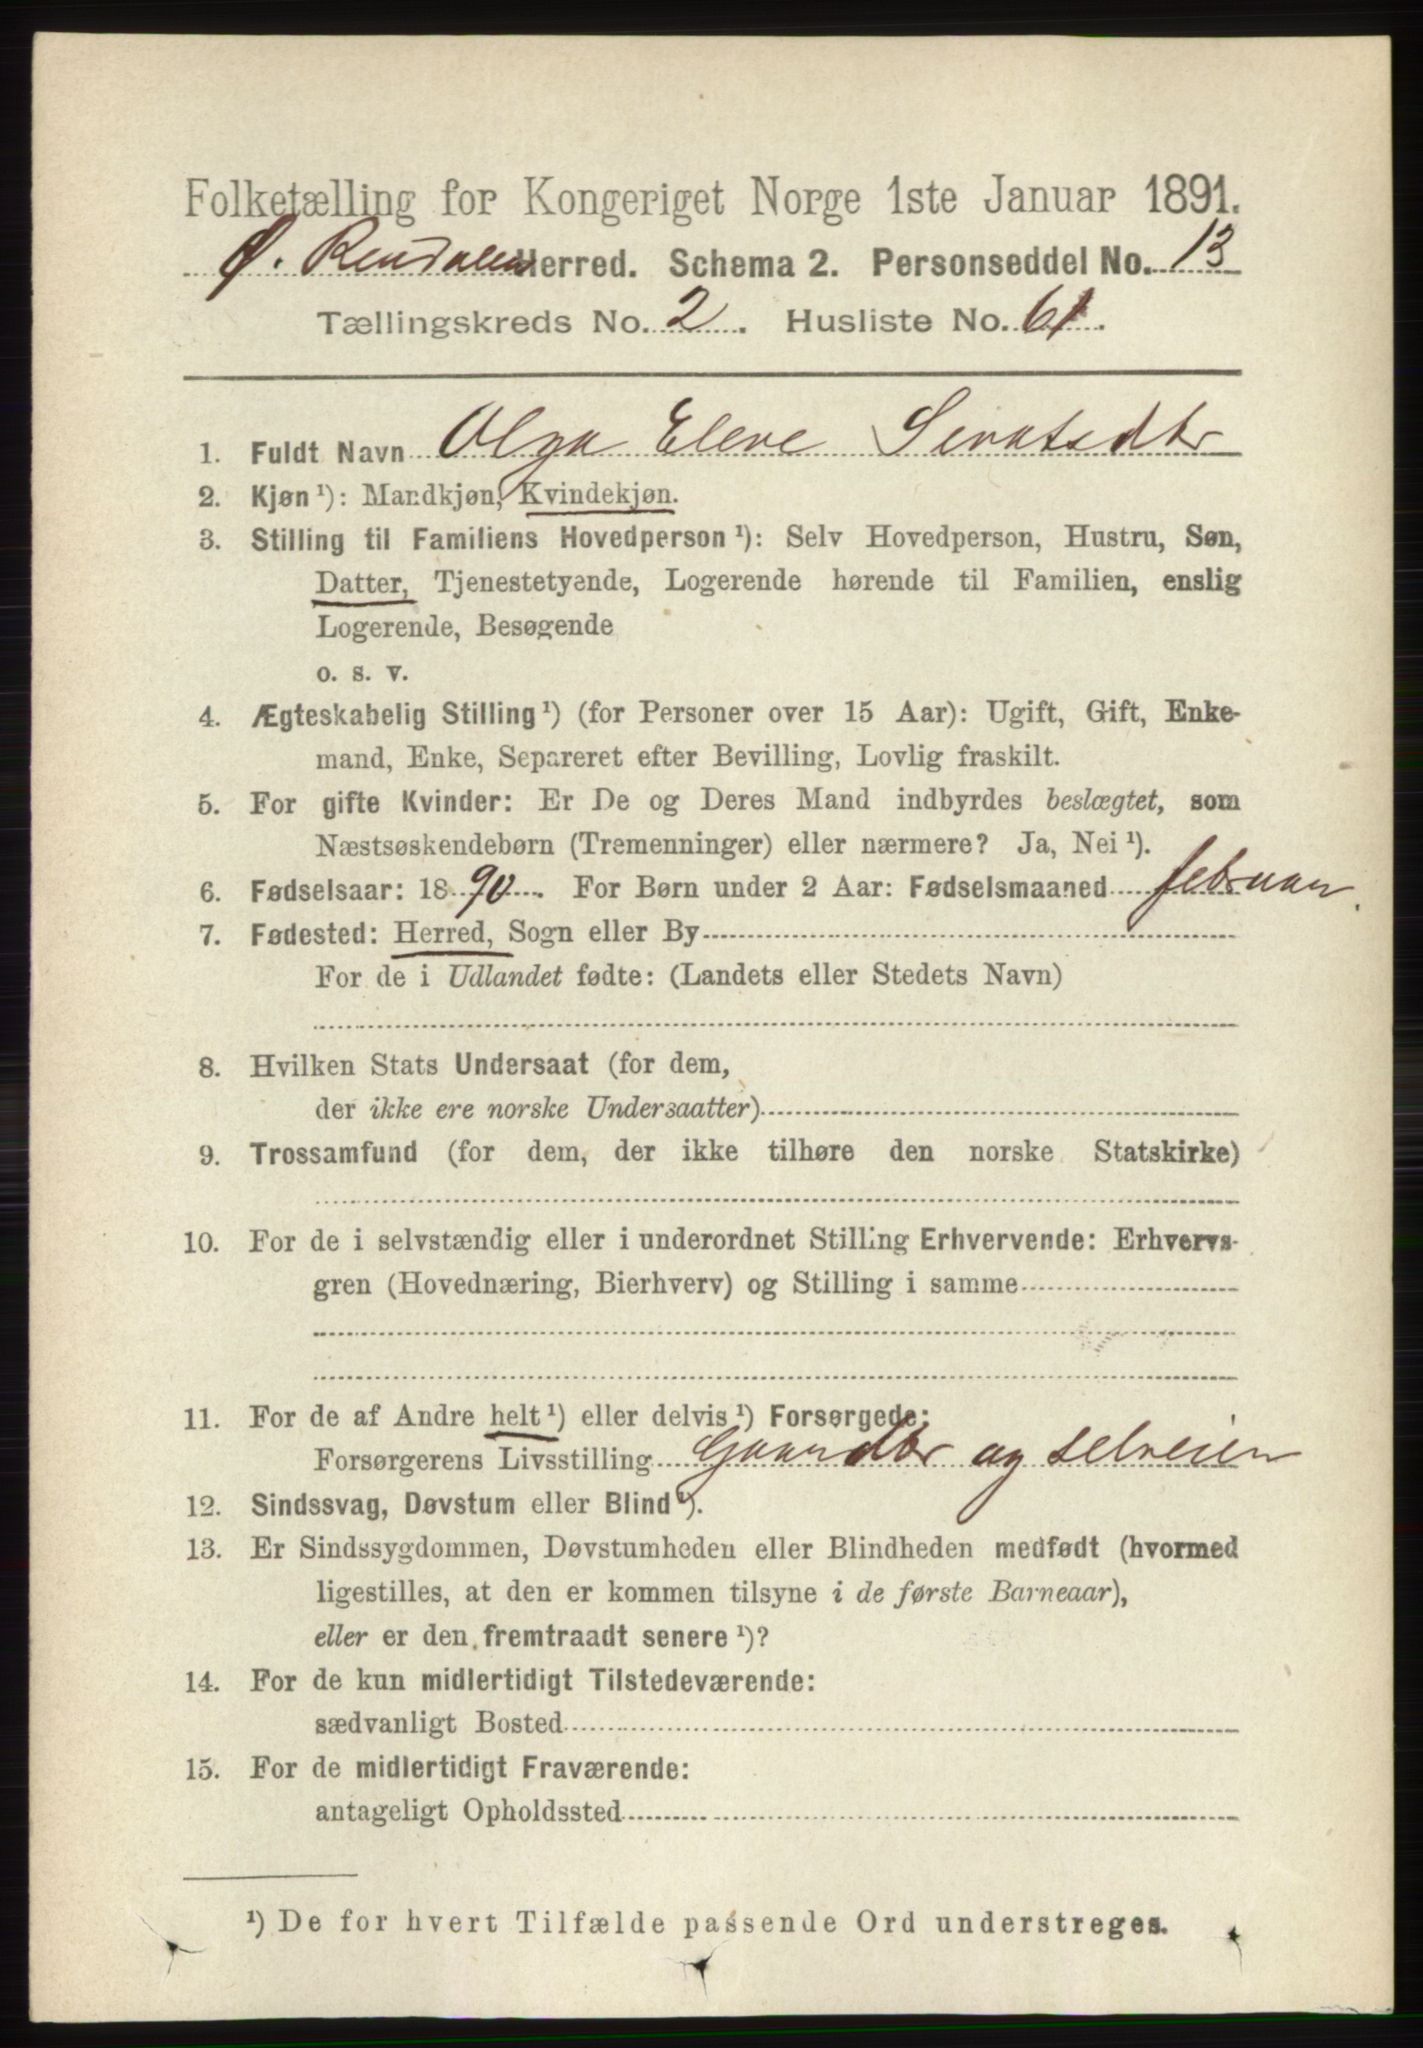 Folketælling for Kongeriget Norge 1ste Januar 1891.
Ø. Rendalens Herred. Schema 2. Personseddel No. 13
Tællingskreds No. 2. Husliste No. 61.
1. Fuldt Navn Olga Elene Sivatsdtr
2. Kjøn ¹): Mandkjøn, Kvindekjøn.
3. Stilling til Familiens Hovedperson ¹): Selv Hovedperson, Hustru, Søn,
Datter, Tjenestetyende, Logerende hørende til Familien, enslig
Logerende, Besøgende
o. s. v.
4. Ægteskabelig Stilling ¹) (for Personer over 15 Aar): Ugift, Gift, Enke-
mand, Enke, Separeret efter Bevilling, Lovlig fraskilt.
5. For gifte Kvinder: Er De og Deres Mand indbyrdes beslægtet, som
Næstsøskendebørn (Tremenninger) eller nærmere? Ja, Nei ¹).
6. Fødselsaar: 1890. For Børn under 2 Aar: Fødselsmaaned februar.
7. Fødested: Herred, Sogn eller By
For de i Udlandet fødte: (Landets eller Stedets Navn)
8. Hvilken Stats Undersaat (for dem,
der ikke ere norske Undersaatter)
9. Trossamfund (for dem, der ikke tilhøre den norske Statskirke)
10. For de i selvstændig eller i underordnet Stilling Erhvervende: Erhvervs-
gren (Hovednæring, Bierhverv) og Stilling i samme
11. For de af Andre helt ¹) eller delvis ¹) Forsørgede:
Forsørgerens Livsstilling Gaardbr og selveier
12. Sindssvag, Døvstum eller Blind ¹).
13. Er Sindssygdommen, Døvstumheden eller Blindheden medfødt (hvormed
ligestilles, at den er kommen tilsyne i de første Barneaar),
eller er den fremtraadt senere ¹)?
14. For de kun midlertidigt Tilstedeværende:
sædvanligt Bosted
15. For de midlertidigt Fraværende:
antageligt Opholdssted
¹) De for hvert Tilfælde passende Ord understreges.